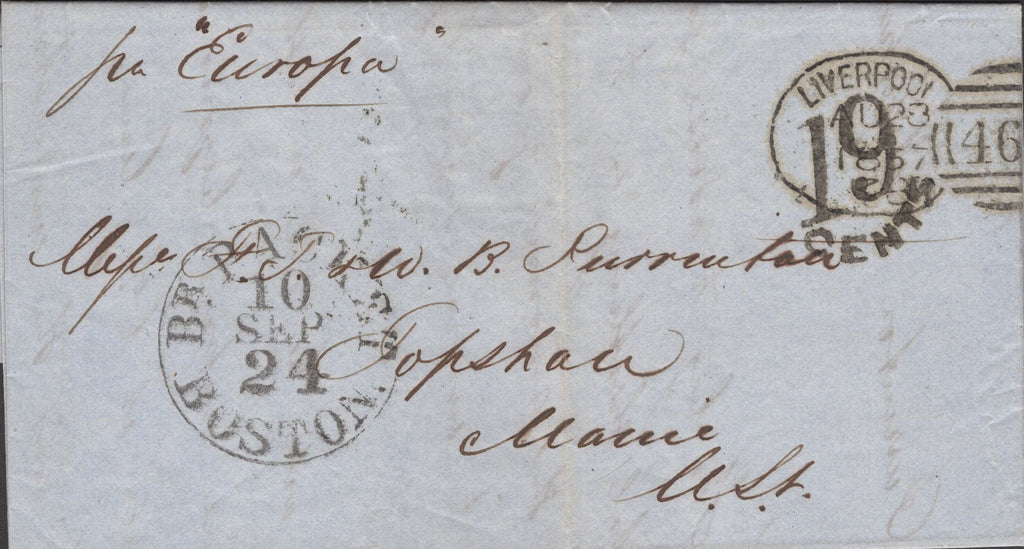 pr "Europa"
LIVERPOOL
AU 28
1857
466
19
CENTS
Messrs F. T. & W. B. Purrinton
Topsham
Maine
U.St.
BR. PACKET
10
SEP
24
BOSTON.